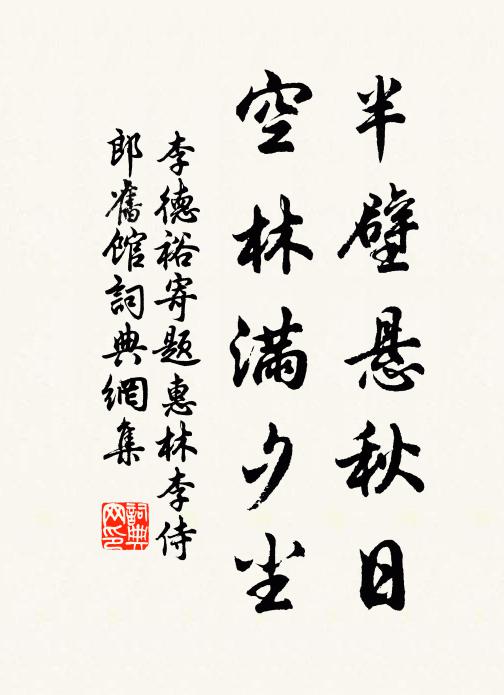 半壁悬秋日
空林满夕尘
李德裕寄题惠林李侍
郎舊馆詞典網集
詞典
网印